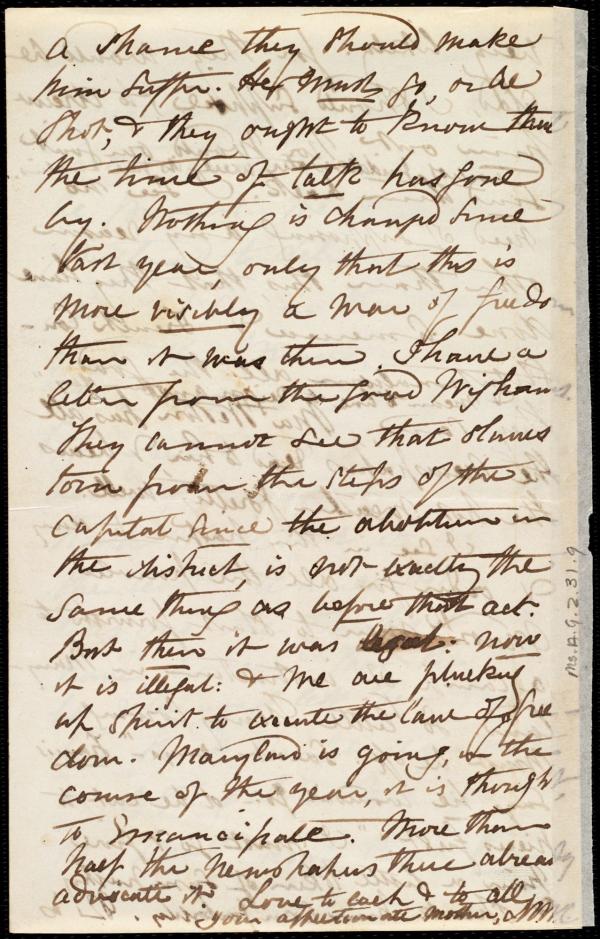 a shame they should make
him suffer. He must go, or be
Shot, & they ought to know that
the time of talk has gone
by. Nothing is changed since
last year, only that this is
more visibly a war of freedo
than it was then. I have a
letter from the good Wighams.
They cannot see that slaves
torn from the steps of the
Capitol since the abolition in
the district, is not exactly the
same thing as before that act.
But then it was legal: now
it is illegal: & we are plucking
up spirit to execute the law of free
dom. Maryland is going, in the
course of the year, it is thought
to Emancipate. More than
half the newspapers there already
advocate it. Love to each & to all
your affectionate mother,
Ms.A.9.2.31.9